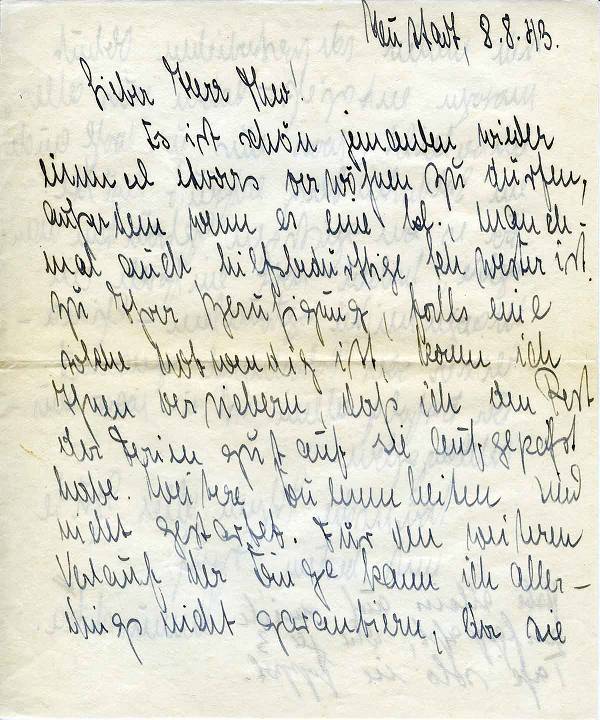 Neustadt, 8.8.43.
Lieber Herr
Es ist schön jemanden wieder
einmal etwas verwöhnen zu dürfen,
außerdem wenn es eine lb. manch-
mal auch hilfsbedürftige Schwester ist.
Zu Ihrer Beruhigung, falls eine
solche notwendig ist, kann ich
Ihnen versichern, daß ich den Rest
der Ferien gut auf sie aufgepaßt
habe. Weitere Dummheiten sind
nicht gestartet. Für den weiteren
Verlauf der Dinge kann ich aller-
dings nicht garantieren, da sie